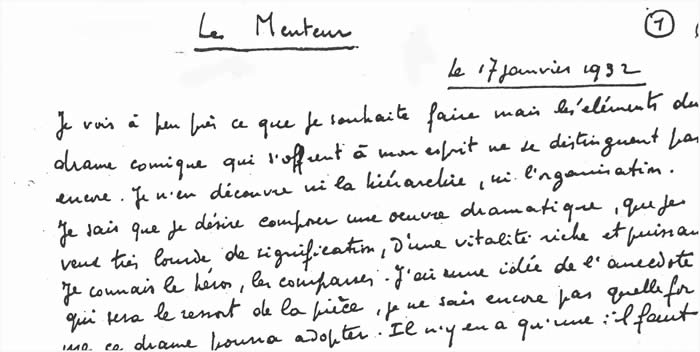 Le Menteur
1
Le 17 janvier 1932
Je vois à peu près ce que je souhaite faire mais les éléments du
drame comique qui s'offrent à mon esprit ne se distinguent pas
encore. Je n'en découvre ni la hiérarchie, ni l'organisation.
Je sais que je désire composer une oeuvre dramatique, que je
veux très lourde de signification, d'une vitalité riche et puissan
Je connais le héros, les comparses. J'ai une idée de l'anecdote
qui sera le ressort de la pièce, je ne sais encore pas quelle for
me ce drame pourra adopter. Il n'y en a qu'une : il faut